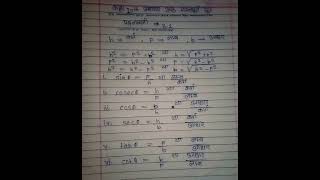 h → कर्ण , p → लम्ब , b → आधार
h² = p² + b² या h = √p² + b²
p² = h² - b² या p = √h² - b²
b² = h² - p² या b = √h² - p²
i. sinθ = p/h या लम्ब/कर्ण
cosecθ = h/p या कर्ण/लम्ब
cosθ = b/h या आधार/कर्ण
secθ = h/b या कर्ण/आधार
v. tanθ = p/b या लम्ब/आधार
vi. cotθ = b/p या आधार/लम्ब